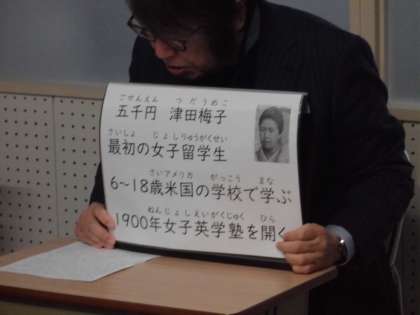 ごせんえん つだうめこ
五千円 津田梅子
さいしょ じょしりゅうがくせい
最初の女子留学生
さいアメリカ がっこう まな
6〜18歳米国の学校で学ぶ
ねんじょしえいがくじゅく ひら
1900年女子英学塾を開く